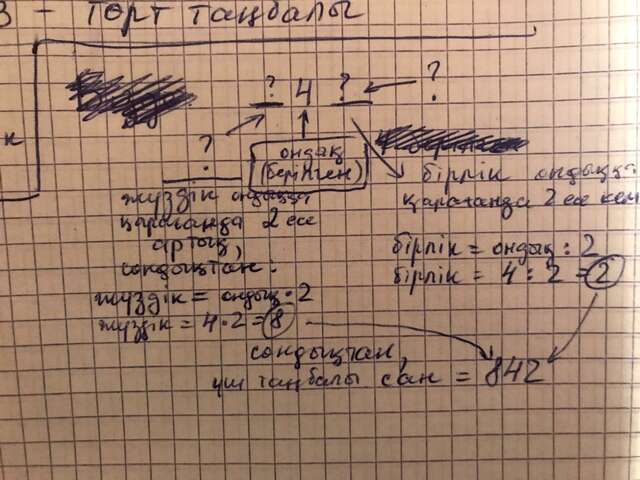 3 - төрт таңбалы
к
?
? 4 ?
?
ондық
(берілген)
жүздік ондыққа
қарағанда 2 есе
артық,
сондықтан:
жүздік = ондық · 2
жүздік = 4 · 2 = 8
бірлік ондыққа
қарағанда 2 есе кем
бірлік = ондық : 2
бірлік = 4 : 2 = 2
сондықтан,
үш таңбалы сан = 842